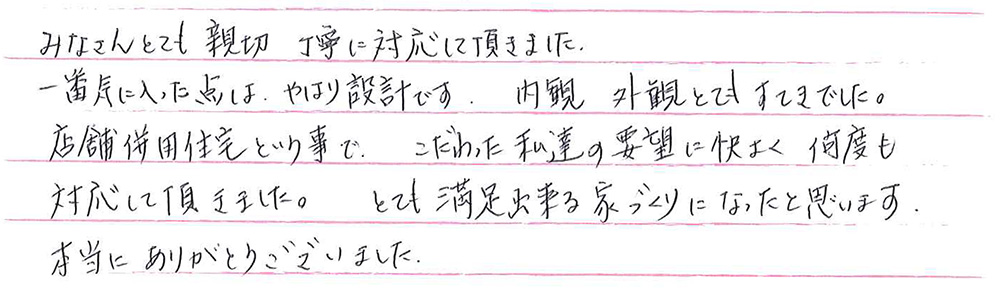 みなさんとても 親切 丁寧に対応して頂きました.
一番気に入った点は. やはり設計です. 内観 外観とても すてきでした。
店舗併用住宅という事で. こだわった私達の要望に快よく 何度も
対応して頂きました。 とても満足出来る家づくりになったと思います.
本当に ありがとうございました.